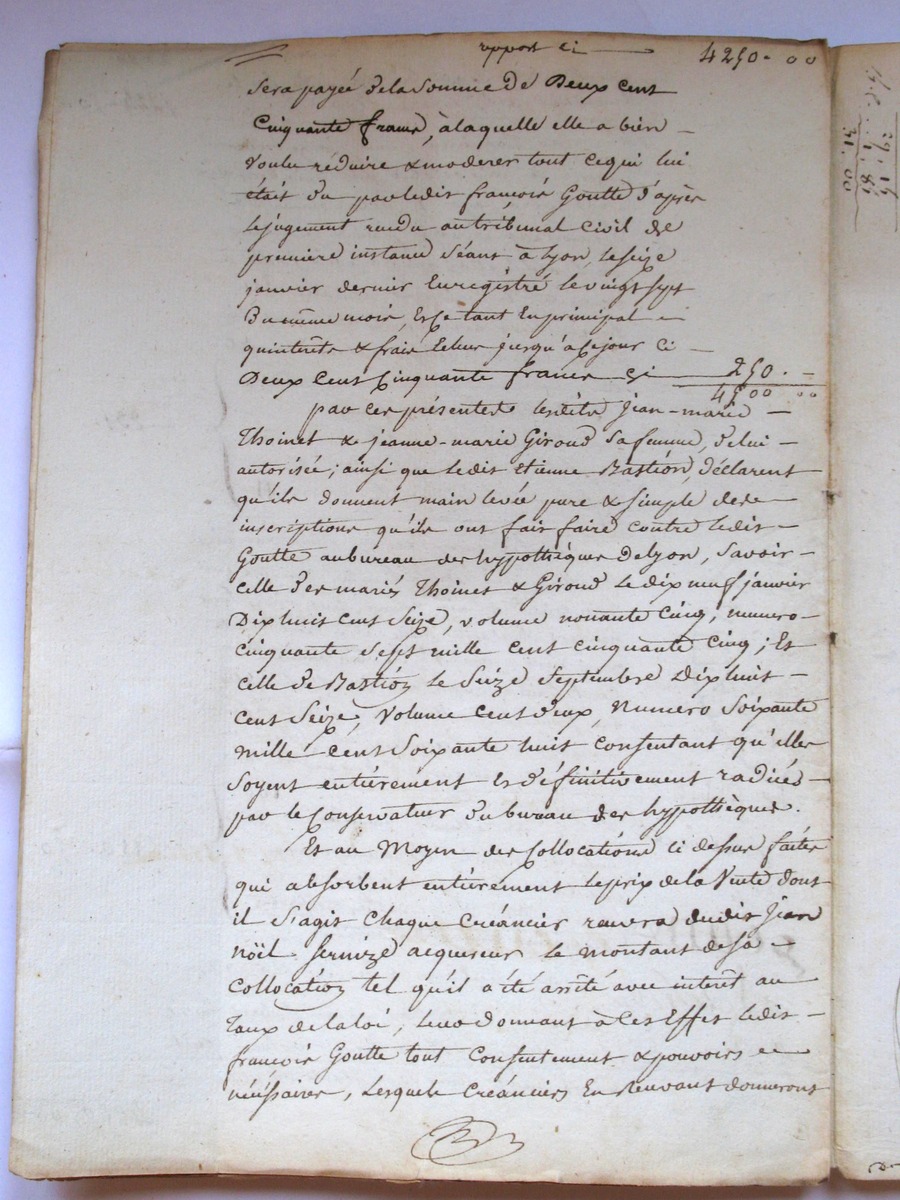 rapport ci 4250. 00
sera payée de la somme de Deux cent
Cinquante francs, à laquelle elle a bien
voulu réduire & moderer tout ce qui lui
était du par ledit françois Goutte d'après
le jugement rendu au tribunal Civil de
premiere instance séant à Lyon, le seize
janvier dernier Enregistré le vingt sept
Du même mois, Et ce tant En principal
qu'intérêts & frais Echus jusqu'à ce jour ci
Deux Cent Cinquante francs ci 250. —
4500 00
par ces présentes lesdits Jean-marie
Thoinet & jeanne-marie Giroud sa femme, de lui
autorisée; ainsi que ledit Etienne Bastion, déclarent
qu'ils donnent main levée pure & simple des
inscriptions qu'ils ont fait faire contre ledit
Goutte au bureau des hypothèques De Lyon, Savoir
celle des mariés Thoinet & Giroud le dix neuf janvier
Dix huit cent seize, volume nonante Cinq, numero
cinquante sept mille cent cinquante cinq; Et
celle de Bastion le Seize Septembre Dix huit
cent Seize, Volume Cent deux, Numero Soixante
mille Cent Soixante huit consentant qu'elles
soyent entiérement Et définitivement radiées
par le Conservateur du bureau des hypothèques.
Et au Moyen des Collocations ci dessus faites
qui absorbent entiérement le prix de la Vente dont
il s'agit Chaque Créancier recevra dudit Jean
Noël fernize acquereur le montant de sa
Collocation tel qu'il a été arrêté avec intérêt au
taux de la loi, leur donnant à Ces Effet ledit
françois Goutte tout Consentement & pouvoirs
nécessaires, Lesquels Créanciers En Recevant donnerons
29. 16
1. 84
31. 00